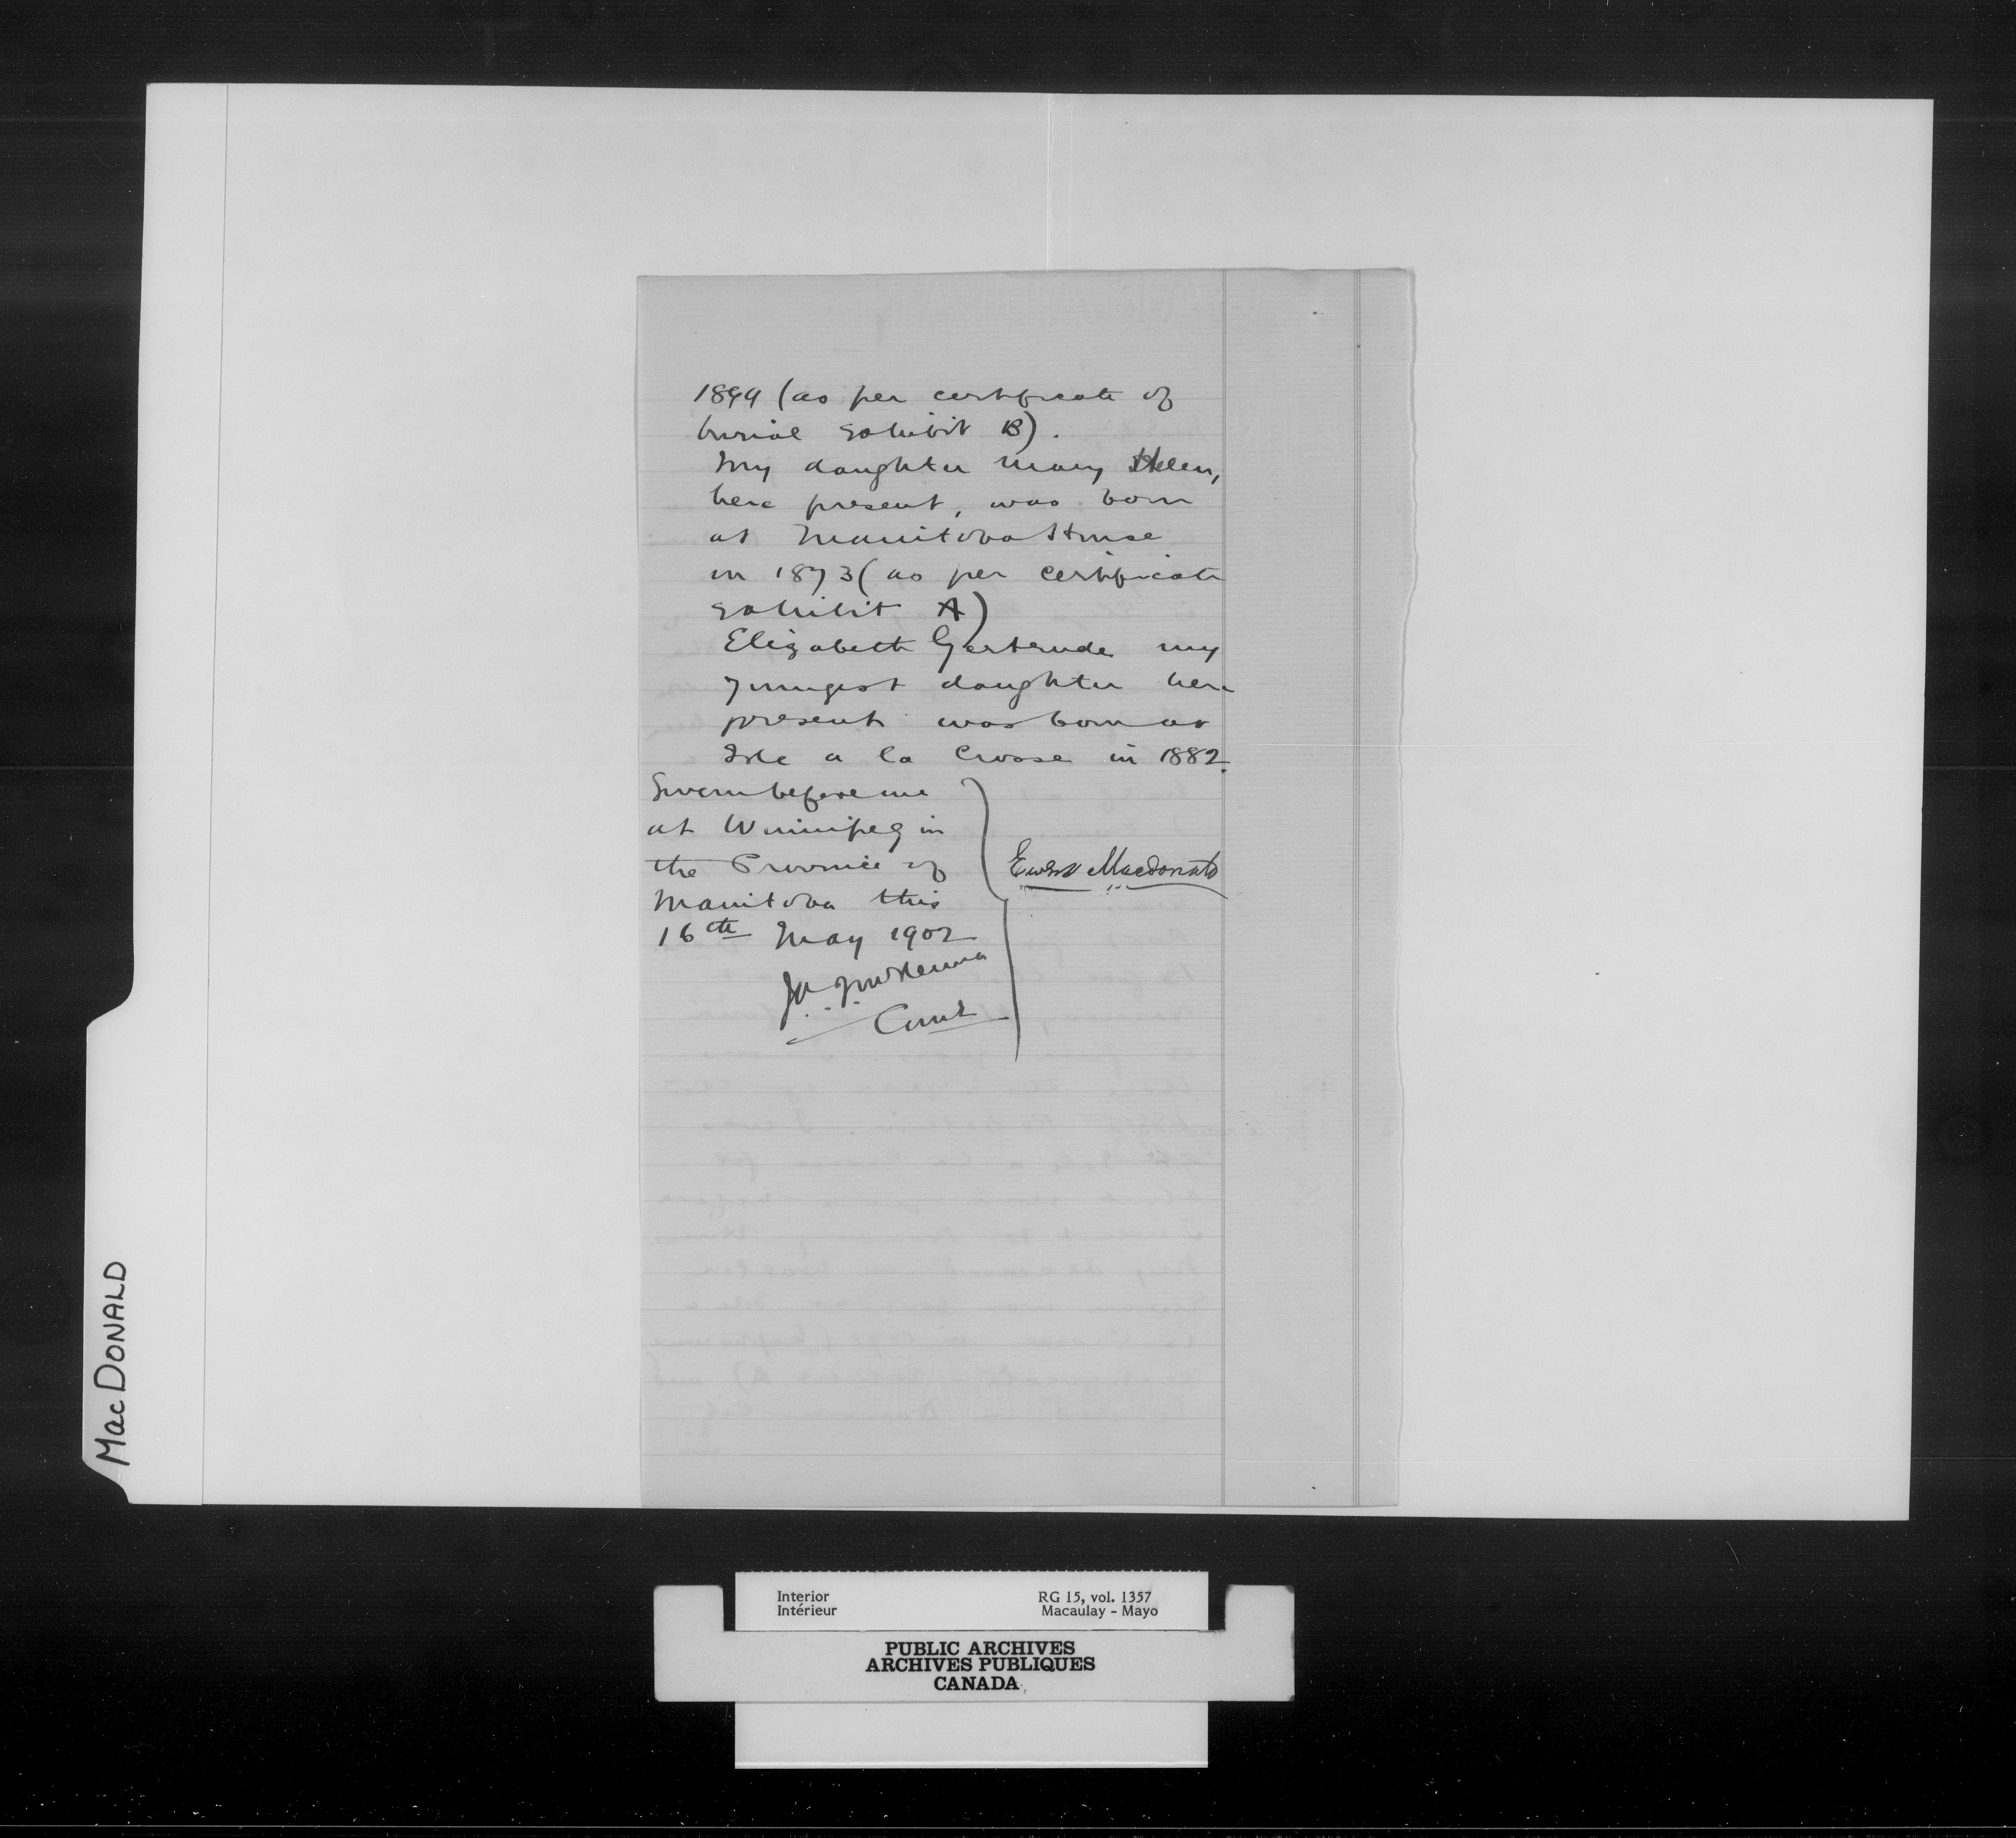 1899 (as per certificate of
burial Exhibit B).
My daughter Mary Helen,
here present, was born
at Manitoba House
in 1873 (as per certificate
Exhibit A)
Elizabeth Gertrude my
youngest daughter here
present was born at
Isle a la Crosse in 1882.
Sworn before me
at Winnipeg in
the Province of
Manitoba this
16th May 1902
Ewen Macdonald
J A J McKenna
Comr
MacDONALD
Interior
Intérieur
RG 15, vol. 1357
Macaulay - Mayo
PUBLIC ARCHIVES
ARCHIVES PUBLIQUES
CANADA